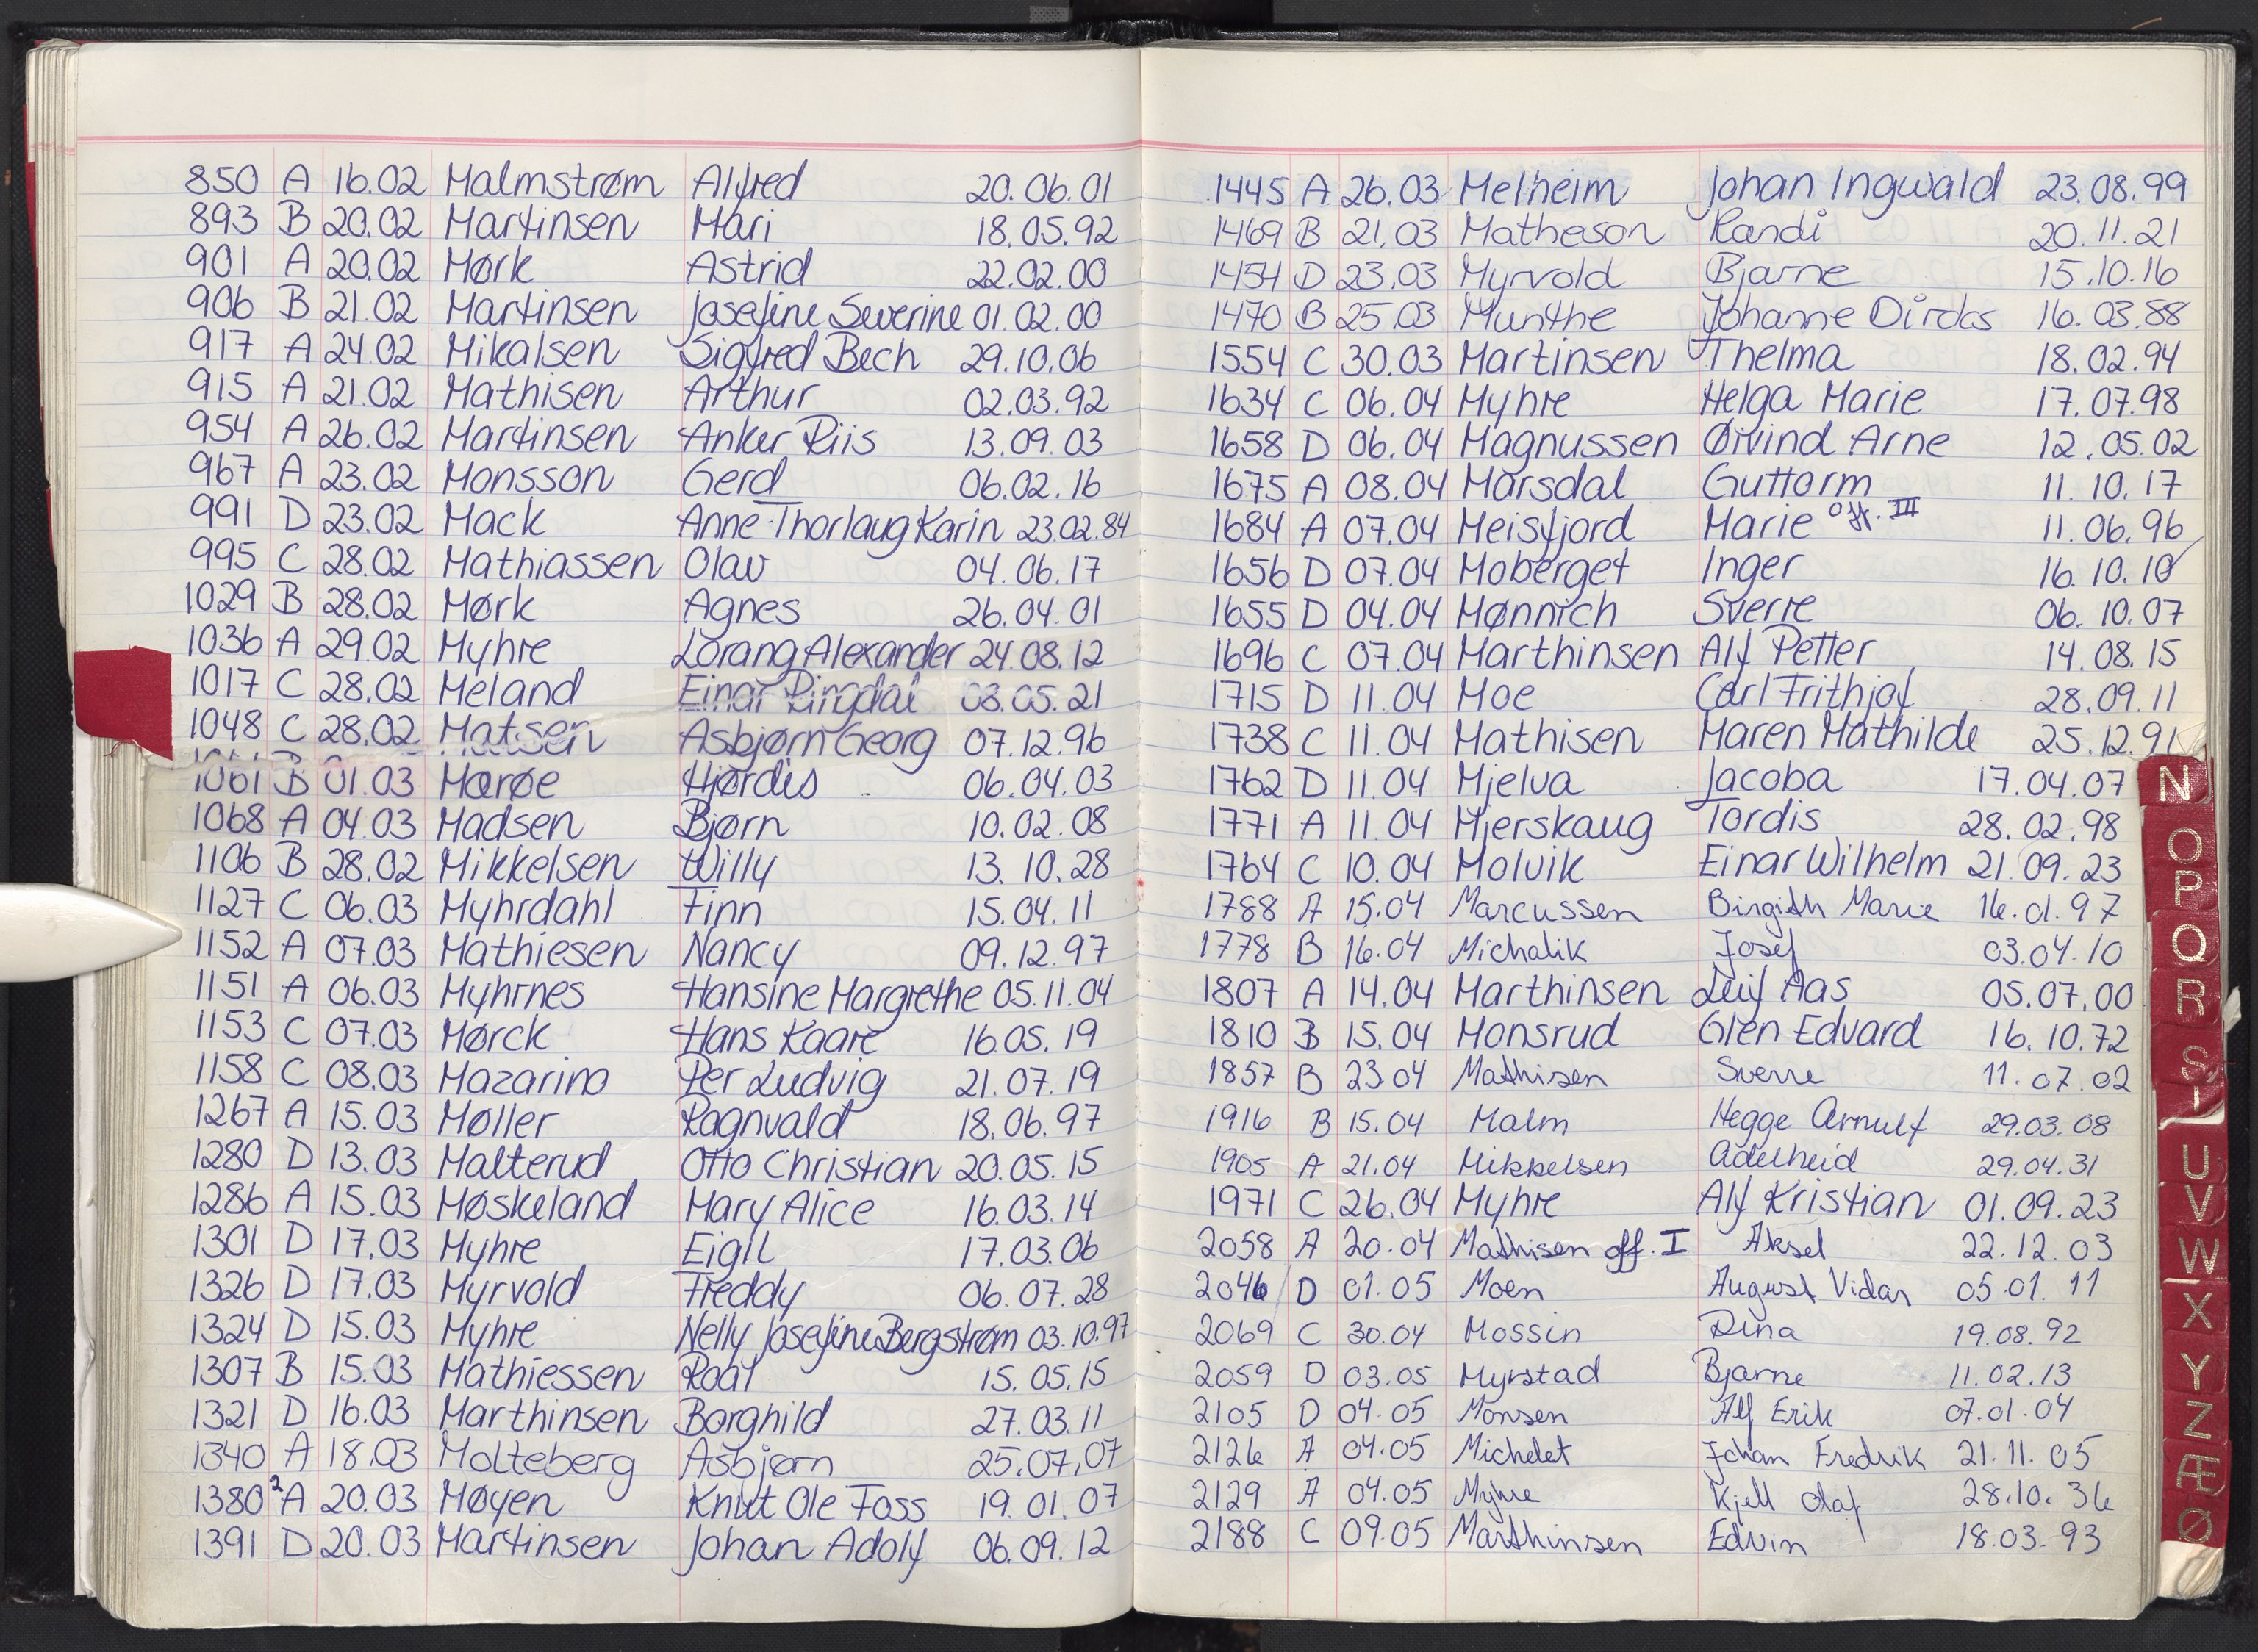 850 A 16.02 Malmstrøm Alfred 20.06.01
893 B 20.02 Martinsen Mari 18.05.92
901 A 20.02 Mørk Astrid 22.02.00
906 B 21.02 Martinsen Josefine Severine 01.02.00
917 A 24.02 Mikalsen Sigfred Bech 29.10.06
915 A 21.02 Mathisen Arthur 02.03.92
954 A 26.02 Martinsen Anker Riis 13.09.03
967 A 23.02 Monsson Gerd 06.02.16
991 D 23.02 Mack Anne Thorlaug Karin 23.02.84
995 C 28.02 Mathiassen Olav 04.06.17
1029 B 28.02 Mørk Agnes 26.04.01
1036 A 29.02 Myhre Lorang Alexander 24.08.12
1017 C 28.02 Meland Einar Ringdal 03.05.21
1048 C 28.02 Matsen Asbjørn Georg 07.12.96
1061 B 01.03 Marøe Hjørdis 06.04.03
1068 A 04.03 Madsen Bjørn 10.02.08
1106 B 28.02 Mikkelsen Willy 13.10.28
1127 C 06.03 Myhrdahl Finn 15.04.11
1152 A 07.03 Mathiesen Nancy 09.12.97
1151 A 06.03 Myhrnes Hansine Margrethe 05.11.04
1153 C 07.03 Mørck Hans Kaare 16.05.19
1158 C 08.03 Mazarino Per Ludvig 21.07.19
1267 A 15.03 Møller Ragnvald 18.06.97
1280 D 13.03 Malterud Otto Christian 20.05.15
1286 A 15.03 Møskeland Mary Alice 16.03.14
1301 D 17.03 Myhre Eigil 17.03.06
1326 D 17.03 Myrvold Freddy 06.07.28
1324 D 15.03 Myhre Nelly Josefine Bergstrøm 03.10.97
1307 B 15.03 Mathiessen Roar 15.05.15
1321 D 16.03 Marthinsen Borghild 27.03.11
1340 A 18.03 Molteberg Asbjørn 25.07.07
1380 2 A 20.03 Møyen Knut Ole Foss 19.01.07
1391 D 20.03 Martinsen Johan Adolf 06.09.12
1445 A 26.03 Melheim Johan Ingwald 23.08.99
1469 B 21.03 Matheson Randi 20.11.21
1454 D 23.03 Myrvold Bjarne 15.10.16
1470 B 25.03 Munthe Johanne Dirdas 16.03.88
1554 C 30.03 Martinsen Thelma 18.02.94
1634 C 06.04 Myhre Helga Marie 17.07.98
1658 D 06.04 Magnussen Øivind Arne 12.05.02
1675 A 08.04 Marsdal Guttorm 11.10.17
1684 A 07.04 Meisfjord Marie off. III 11.06.96
1656 D 07.04 Moberget Inger 16.10.10
1655 D 04.04 Mønnich Sverre 06.10.07
1696 C 07.04 Marthinsen Alf Petter 14.08.15
1715 D 11.04 Moe Carl Frithjof 28.09.11
1738 C 11.04 Mathisen Maren Mathilde 25.12.91
1762 D 11.04 Mjelva Jacoba 17.04.07
1771 A 11.04 Mjerskaug Tordis 28.02.98
1764 C 10.04 Molvik Einar Wilhelm 21.09.23
1788 A 15.04 Marcussen Birgith Marie 16.01.97
1778 B 16.04 Michalik Josef 03.04.10
1807 A 14.04 Marthinsen Leif Aas 05.07.00
1810 B 15.04 Monsrud Glen Edvard 16.10.72
1857 B 23.04 Mathisen Sverre 11.07.02
1916 B 15.04 Malm Hegge Arnulf 29.03.08
1905 A 21.04 Mikkelsen Adelheid 29.04.31
1971 C 26.04 Myhre Alf Kristian 01.09.23
2058 A 20.04 Mathisen off. I Aksel 22.12.03
2046 D 01.05 Moen August Vidar 05.01.11
2069 C 30.04 Mossin Dina 19.08.92
2059 D 03.05 Myrstad Bjarne 11.02.13
2105 D 04.05 Monsen Alf Erik 07.01.04
2126 A 04.05 Michelet Johan Fredrik 21.11.05
2129 A 04.05 Myhre Kjell Olaf 28.10.36
2188 C 09.05 Marthinsen Edvin 18.03.93
N
O
P
Q
R
S
T
U
V
W
X
Y
Z
Æ
Ø